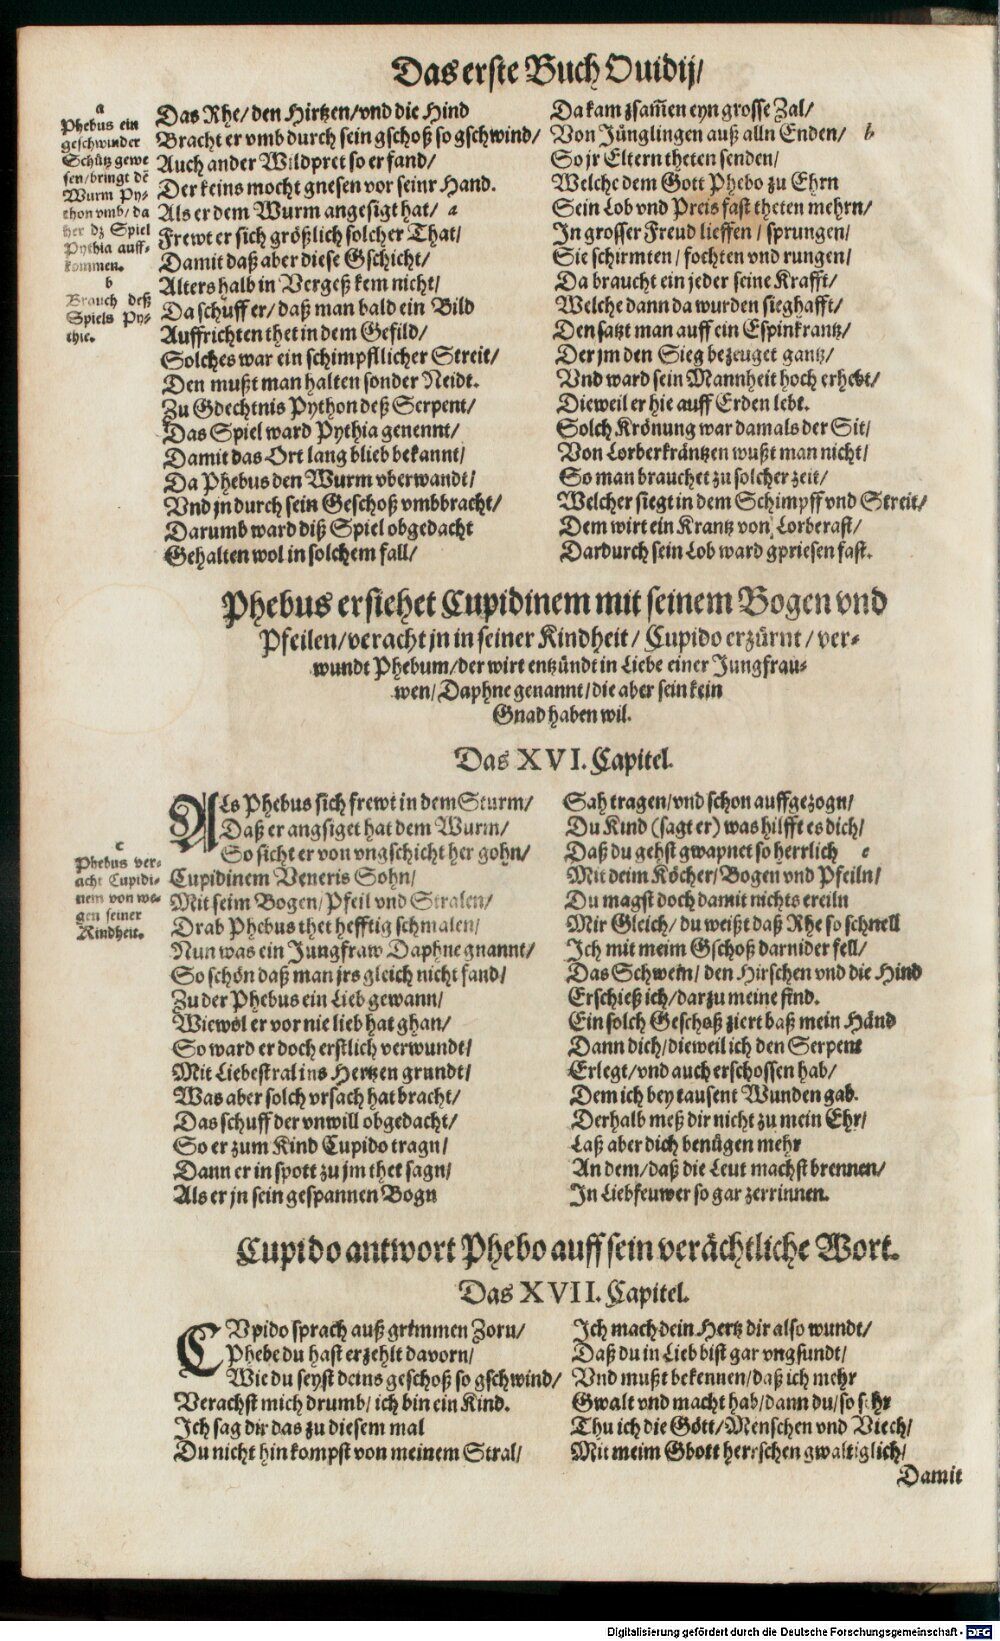 Das erste Buch Ouidij/
a
Phebus ein
geschwinder
Schütz gewe
sen/bringt dē
Wurm Py-
thon vmb/ da
her dz Spiel
Pythia auff-
kommen.
b
Brauch deß
Spiels Py-
thie.
Das Rhe/ den Hirtzen/vnd die Hind
Bracht er vmb durch sein gschoß so gschwind/
Auch ander Wildpret so er fand/
Der keins mocht gnesen vor seinr Hand.
Als er dem Wurm angesigt hat/ a
Frewt er sich größlich solcher That/
Damit daß aber diese Gschicht/
Alters halb in Vergeß kem nicht/
Da schuff er/ daß man bald ein Bild
Auffrichten thet in dem Gefild/
Solches war ein schimpfllicher Streit/
Den mußt man halten sonder Neidt.
Zu Gdechtnis Python deß Serpent/
Das Spiel ward Pythia genennt/
Damit das Ort lang blieb bekannt/
Da Phebus den Wurm vberwandt/
Vnd jn durch sein Geschoß vmbbracht/
Darumb ward diß Spiel obgedacht
Gehalten wol in solchem fall/
Da kam zsam̃en eyn grosse Zal/
Von Jünglingen auß alln Enden/ b
So jr Eltern theten senden/
Welche dem Gott Phebo zu Ehrn
Sein Lob vnd Preis fast theten mehrn/
In grosser Freud lieffen / sprungen/
Sie schirmten / fochten vnd rungen/
Da braucht ein jeder seine Krafft/
Welche dann da wurden sieghafft/
Den satzt man auff ein Espinkrantz/
Der jm den Sieg bezeuget gantz/
Vnd ward sein Mannheit hoch erhebt/
Dieweil er hie auff Erden lebt.
Solch Krönung war damals der Sit/
Von Lorberkräntzen wußt man nicht/
So man brauchet zu solcher zeit/
Welcher siegt in dem Schimpff vnd Streit/
Dem wirt ein Krantz von Lorberast/
Dardurch sein Lob ward gpriesen fast.
Phebus ersiehet Cupidinem mit seinem Bogen vnd
Pfeilen/veracht jn in seiner Kindheit/ Cupido erzürnt / ver-
wundt Phebum/der wirt entzündt in Liebe einer Jungfrau-
wen/ Daphne genannt/die aber sein kein
Gnad haben wil.
Das XVI. Capitel.
c
Phebus ver-
acht Cupidi-
nem von we-
gen seiner
Kindheit.
Als Phebus sich frewt in dem Sturm/
Daß er angsiget hat dem Wurm/
So sicht er von vngschicht her gohn/
Cupidinem Veneris Sohn/
Mit seim Bogen/ Pfeil vnd Stralen/
Drab Phebus thet hefftig schmalen/
Nun was ein Jungfraw Daphne gnannt/
So schön daß man jrs gleich nicht fand/
Zu der Phebus ein Lieb gewann/
Wiewol er vor nie lieb hat ghan/
So ward er doch erstlich verwundt/
Mit Liebestral ins Hertzen grundt/
Was aber solch vrsach hat bracht/
Das schuff der vnwill obgedacht/
So er zum Kind Cupido tragn/
Dann er in spott zu jm thet sagn/
Als er jn sein gespannen Bogn
Sah tragen/vnd schon auffgezogn/
Du Kind (sagt er) was hilfft es dich/
Daß du gehst gwapnet so herrlich c
Mit deim Köcher/Bogen vnd Pfeiln/
Du magst doch damit nichts ereiln
Mir Gleich/ du weißt daß Rhe so schnell
Ich mit meim Gschoß darnider fell/
Das Schwein/ den Hirschen vnd die Hind
Erschieß ich/darzu meine find.
Ein solch Geschoß ziert baß mein Händ
Dann dich/dieweil ich den Serpent
Erlegt/vnd auch erschossen hab/
Dem ich bey tausent Wunden gab.
Derhalb meß dir nicht zu mein Ehr/
Laß aber dich benügen mehr
An dem/daß die Leut machst brennen/
In Liebfeuwer so gar zerrinnen.
Cupido antwort Phebo auff sein verächtliche Wort.
Das XVII. Capitel.
CVpido sprach auß grimmen Zorn/
Phebe du hast erzehlt davorn/
Wie du seyst deins geschoß so gschwind/
Verachst mich drumb/ ich bin ein Kind.
Ich sag dir das zu diesem mal
Du nicht hin kompst von meinem Stral/
Ich mach dein Hertz dir also wundt/
Daß du in Lieb bist gar vngsundt/
Vnd mußt bekennen/daß ich mehr
Gwalt vnd macht hab/dann du/so sehr
Thu ich die Gött/Menschen vnd Viech/
Mit meim Gbott herrschen gwaltiglich/
Damit
Digitalisierung gefördert durch die Deutsche Forschungsgemeinschaft - DFG